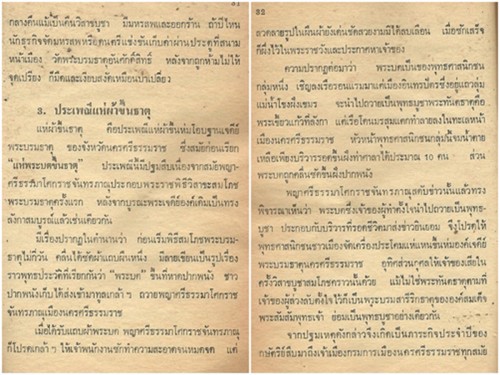 กลางคืนแม้เป็นคืนวิสาขบูชา มีมหรสพและออกร้าน ถ้าปีไหน
นักธุรกิจจัดมหรสพหรือดนตรีแข่งขันเก็บค่าผ่านประตูที่สนาม
หน้าเมือง วัดพระบรมธาตุย่นศักดิ์สิทธิ์ หลังจากถูกห้ามไม่ให้
จุดเปรียง ก็มืดและเงียบสงัดเหมือนป่าเปลี่ยว
3. ประเพณีแห่ผ้าขึ้นธาตุ
แห่ผ้าขึ้นธาตุ คือประเพณีแห่ผ้าขึ้นห่มโอบฐานเจดีย์
พระบรมธาตุ ของจังหวัดนครศรีธรรมราช ซึ่งสมัยก่อนเรียก
"แห่พระบตขึ้นธาตุ" ประเพณีนี้มีปฐมสืบเนื่องจากสมัยพญา
ศรีธรรมาโศกราชจันทรภาณุประกอบพระราชพิธีวิสาขะสมโภช
พระบรมธาตุครั้งแรก หลังจากบูรณะพระเจดีย์องค์เดิมเป็นทรง
ลังกาสมบูรณ์แล้วเช่นเดียวกัน
มีเรื่องปรากฏในตำนานว่า ก่อนเริ่มพิธีสมโภชพระบรม-
ธาตุไม่กี่วัน คลื่นได้ซัดผ้าแถบผืนหนึ่ง มีลายเขียนเป็นรูปเรื่อง
ราวพุทธประวัติที่เรียกกันว่า "พระบต" ขึ้นที่หาดปากพนัง ชาว
ปากพนังเก็บได้ส่งเข้ามาทูลเกล้า ๆ ถวายพญาศรีธรรมาโศกราช
จันทรภาณุเมืองนครศรีธรรมราช
เมื่อได้รับแถบผ้าพระบต พญาศรีธรรมาโศกราชจันทรภาณุ
ก็โปรดเกล้า ๆ ให้เจ้าพนักงานซักทำความสะอาดจนหมดจด แต่
32
ลวดลายรูปในผืนผ้ายังเด่นชัดสวยงามมิได้ลบเลือน เมื่อซักเสร็จ
ก็ผึ่งไว้ในพระราชวังและประกาศหาเจ้าของ
ความปรากฏต่อมาว่า พระบตเป็นของพุทธศาสนิกชน
กลุ่มหนึ่ง เชิญลงเรือรอนแรมมาแต่เมืองอินทรปัตรซึ่งอยู่แถวลุ่ม
แม่น้ำโขงฝั่งเขมร จะนำไปถวายเป็นพุทธบูชาพระทันตธาตุคือ
พระเขี้ยวแก้วที่ลังกา แต่เรือโดนมรสุมแตกทำลายลงในทะเลหน้า
เมืองนครศรีธรรมราช หัวหน้าพุทธศาสนิกชนกลุ่มนี้จมน้ำตาย
เหลือเพียงบริวารรอดขึ้นฝั่งท่าศาลาได้ประมาณ 10 คน ส่วน
พระบตถูกคลื่นซัดขึ้นฝั่งปากพนัง
พญาศรีธรรมาโศกราชจันทรภาณุสดับข่าวนั้นแล้วทรง
พิจารณาเห็นว่า พระบตซึ่งเจ้าของผู้ทำตั้งใจนำไปถวายเป็นพุทธ-
บูชา ประกอบกับบริวารที่รอดชีวิตมาส่งข่าวยินยอม จึงโปรดให้
พุทธศาสนิกชนชาวเมืองจัดเครื่องประโคมแห่แหนขึ้นห่มองค์เจดีย์
พระบรมธาตุนครศรีธรรมราช อุทิศส่วนกุศลให้เจ้าของเสียใน
ครั้งวิสาขบูชาสมโภชคราวนั้นด้วย แม้ไม่ใช่พระทันตธาตุตามที่
เจ้าของผู้ล่วงลับตั้งใจไว้ก็เป็นพระบรมสารีริกธาตุขององค์สมเด็จ
พระสัมมาสัมพุทธเจ้า ย่อมเป็นพุทธบูชาอย่างเดียวกัน
จากปฐมเหตุดังกล่าวจึงเกิดเป็นภาระกิจประจำปีของ
กษัตริย์สืบมาถึงเจ้าเมืองกรมการเมืองนครศรีธรรมราชทุกสมัย